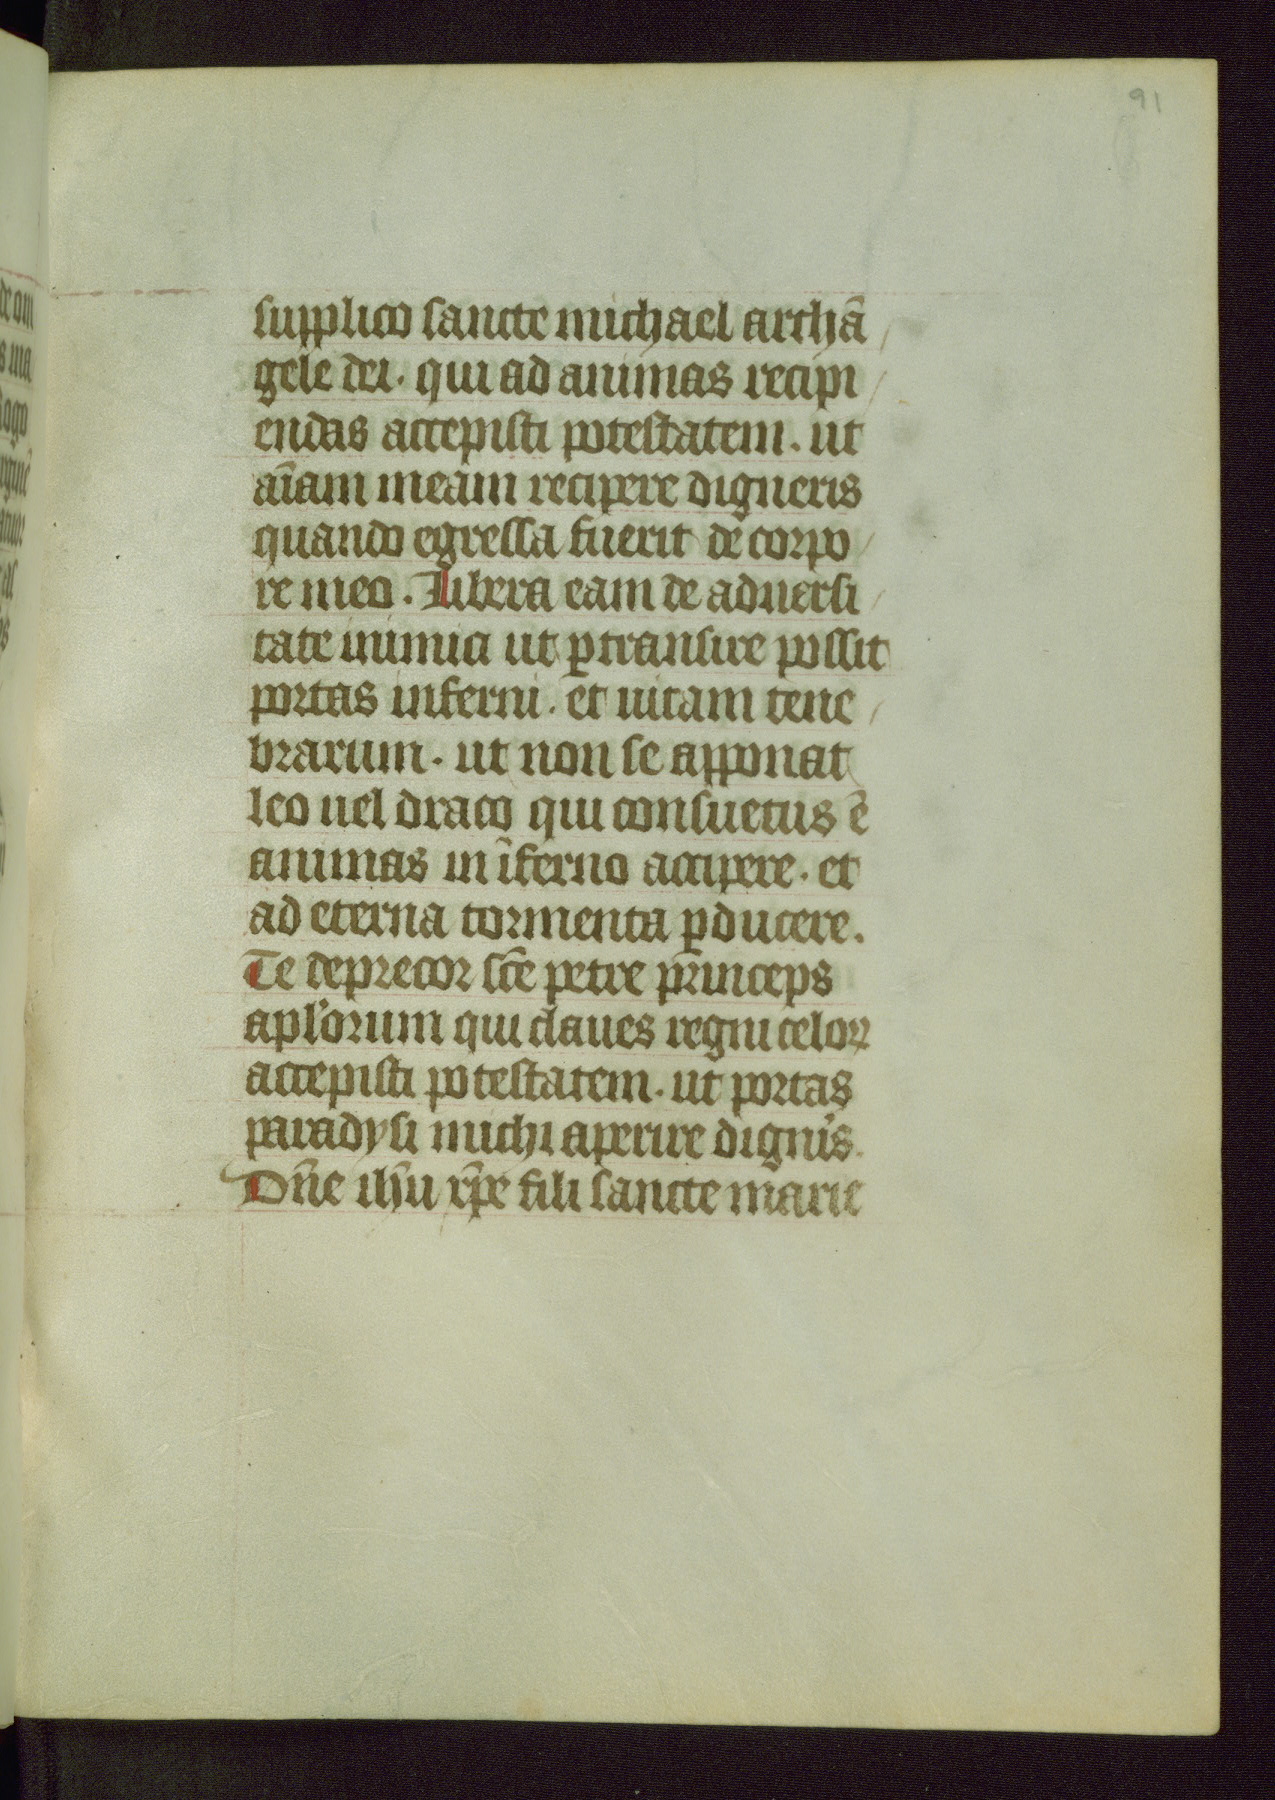 91
supplico sancte michael archā
gele dei. qui ad animas recipi
endas accepisti potestatem. ut
aīam meam recipere digneris
quando egressa fuerit de corpo
re meo. Libera eam de aduersi
tate inimici ut ꝑtransire possit
portas inferni. et uitam tene
brarum. ut non se apponat
leo uel draco qui consuetus ē
animas in īferno accipere. et
ad eterna tormenta ꝑducere.
Te deprecor sc̄e petre p̄rinceps
apl'orum qui claues regni celoꝝ
accepisti potestatem. ut portas
paradysi michi aperire digni's.
Dn̄e ihū xp̄e fili sancte marie